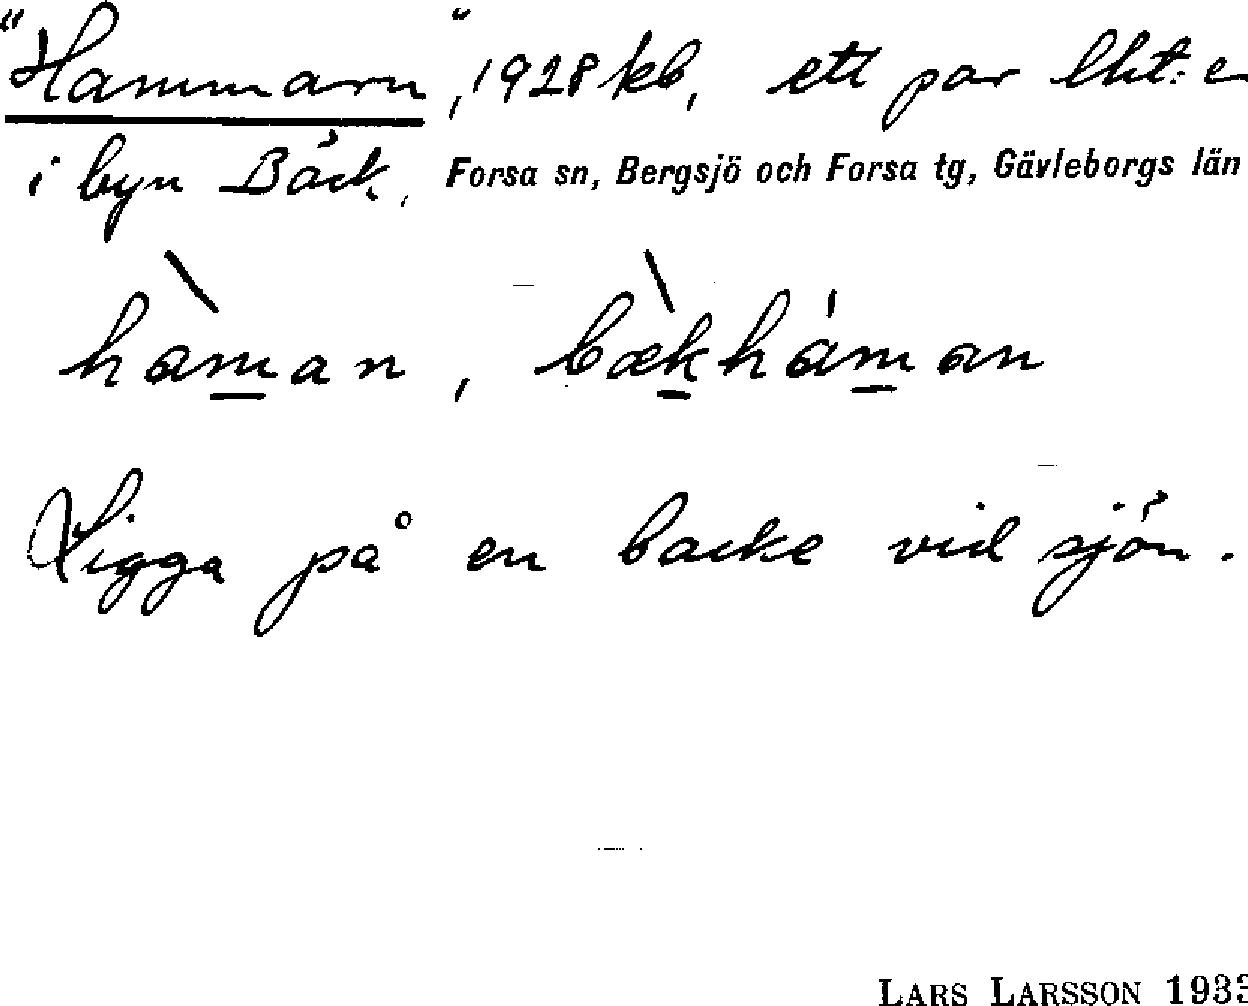 "Hammarn", 1928 kb, ett par lht:er
i byn Bäck, Forsa sn, Bergsjö och Forsa tg, Gävleborgs län
hàman, bæ̀kháman
Ligga på en backe vid sjön.
LARS LARSSON